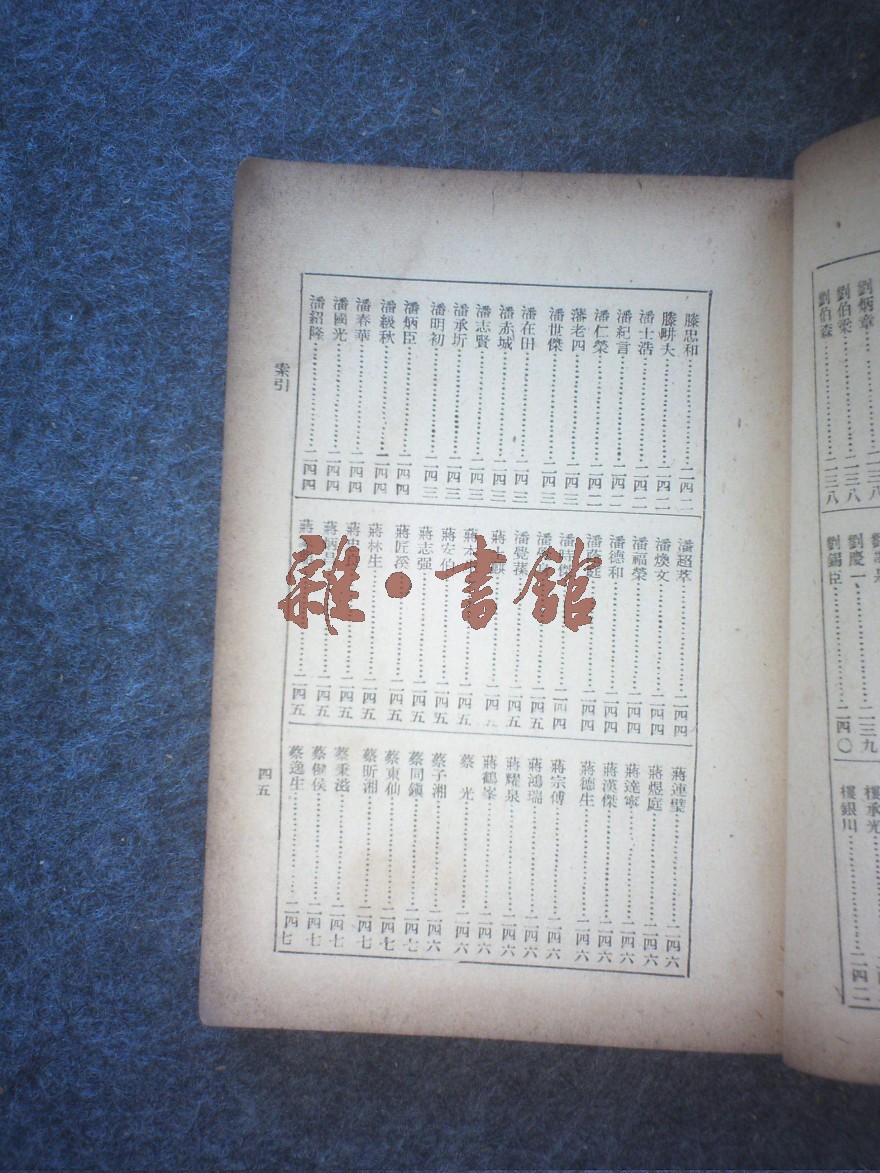 滕忠和……二四二
滕畊夫……二四二
潘士浩……二四二
潘紀言……二四二
潘仁榮……二四二
藩老四……二四三
潘世傑……二四三
潘在田……二四三
潘赤城……二四三
潘志賢……二四三
潘承圻……二四三
潘明初……二四三
潘炳臣……二四四
潘級秋……二四四
潘春華……二四四
潘國光……二四四
潘紹隆……二四四
潘超萃……二四四
潘煥文……二四四
潘福榮……二四四
潘德和……二四四
潘……二四四
潘……傑……二四四
潘……二四五
潘覺……二四五
蔣……二四五
蔣……二四五
蔣安伯……二四五
蔣志强……二四五
蔣匠……二四五
蔣林生……二四五
蔣……二四五
蔣……二四五
蔣……二四五
蔣連璧……二四六
蔣煜庭……二四六
蔣達寧……二四六
蔣漢傑……二四六
蔣德生……二四六
蔣宗傅……二四六
蔣鴻瑞……二四六
蔣耀泉……二四六
蔣鶴峯……二四六
蔡 光……二四六
蔡子湘……二四六
蔡同鎭……二四七
蔡東仙……二四七
蔡昕湘……二四七
蔡秉滋……二四七
蔡健侯……二四七
蔡逸生……二四七
索引
四五
劉炳章……二三八
劉伯棠……二三八
劉伯森……二三八
劉慶一……二三九
劉錫臣……二四〇
樓承光
樓銀川……二四二
雜·書館